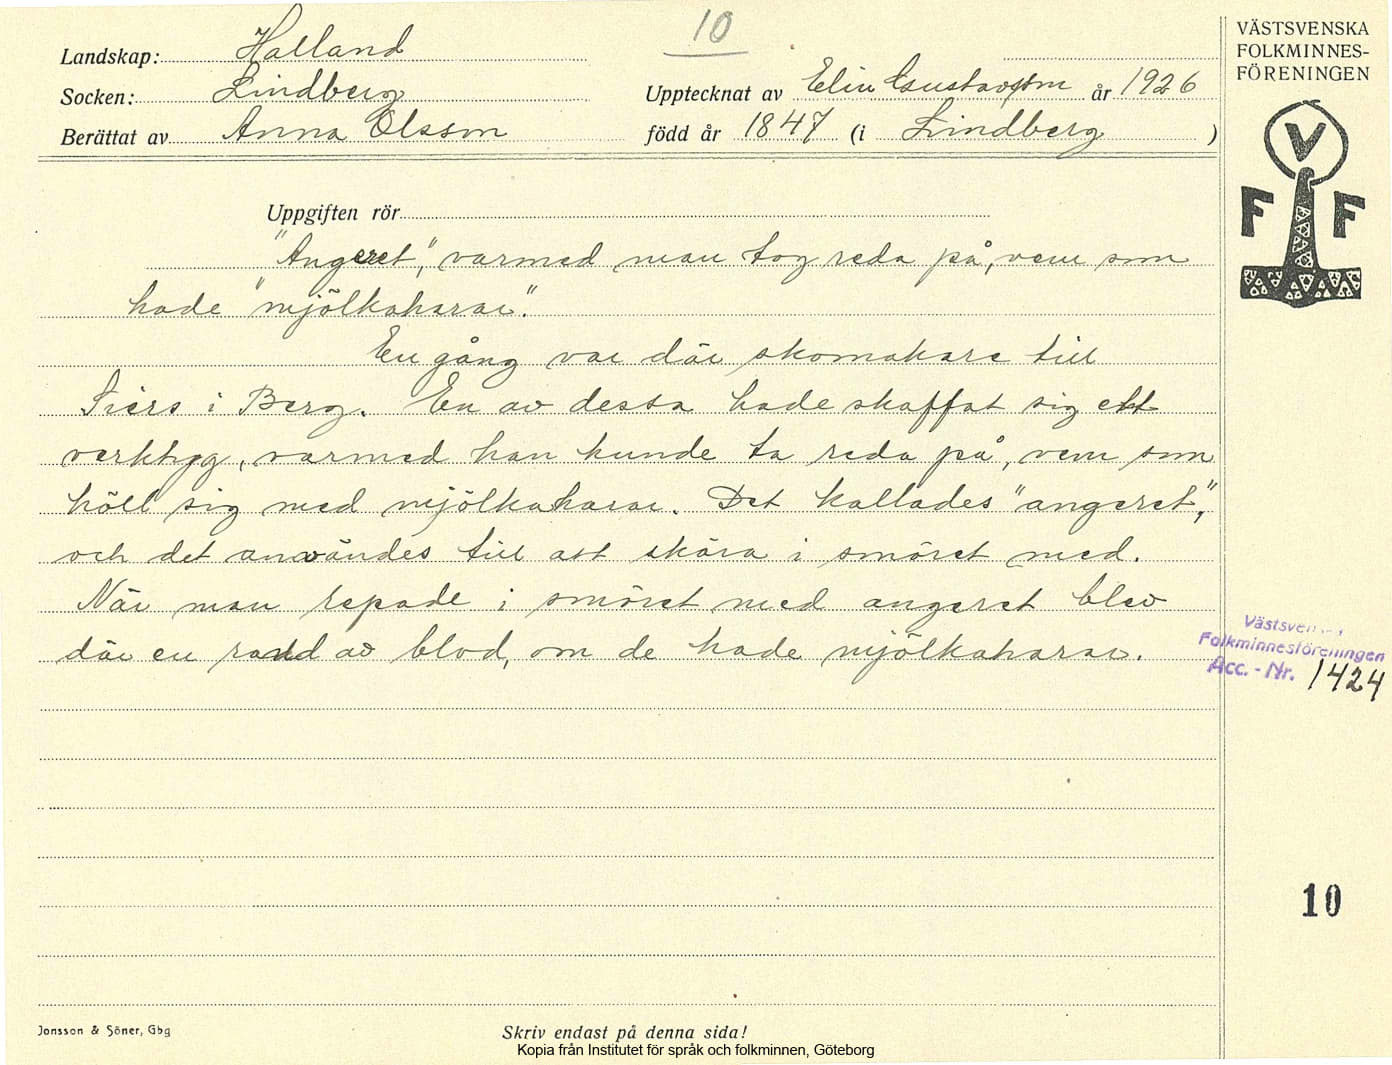 10
Landskap: Halland
Socken: Lindberg
Upptecknat av Elin Gustavsson år 1926
Berättat av Anna Olsson född år 1847 (i Lindberg )
Uppgiften rör
"Angeret", varmed man tog reda på, vem som
hade "mjölkaharar".
En gång var där skomakare till
i Berg. En av dessa hade skaffat sig ett
verktyg, varmed han kunde ta reda på, vem som
höll sig med mjölkaharar. Det kallades "angeret",
och det användes till att skära i smöret med.
När man repade i smöret med angeret blev
där en rand av blod, om de hade mjölkaharar.
VÄSTSVENSKA
FOLKMINNES-
FÖRENINGEN
V
F F
Västsvenska
Folkminnesföreningen
Acc.-Nr. 1424
10
Jonsson & Söner, Gbg
Skriv endast på denna sida!
Kopia från Institutet för språk och folkminnen, Göteborg